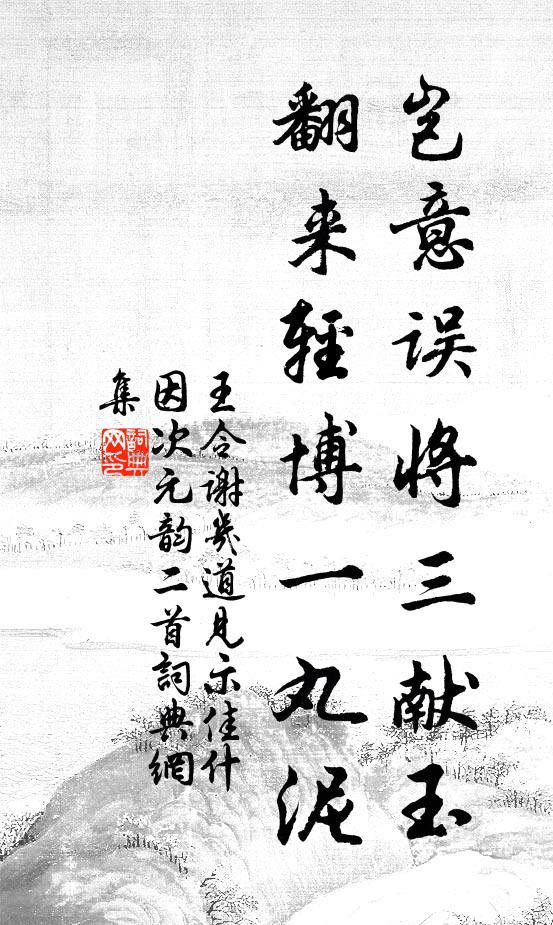 岂意误将三献玉
翻来轻博一丸泥
王令谢几道见示佳什
因次元韵二首詞典網
集
詞典網印